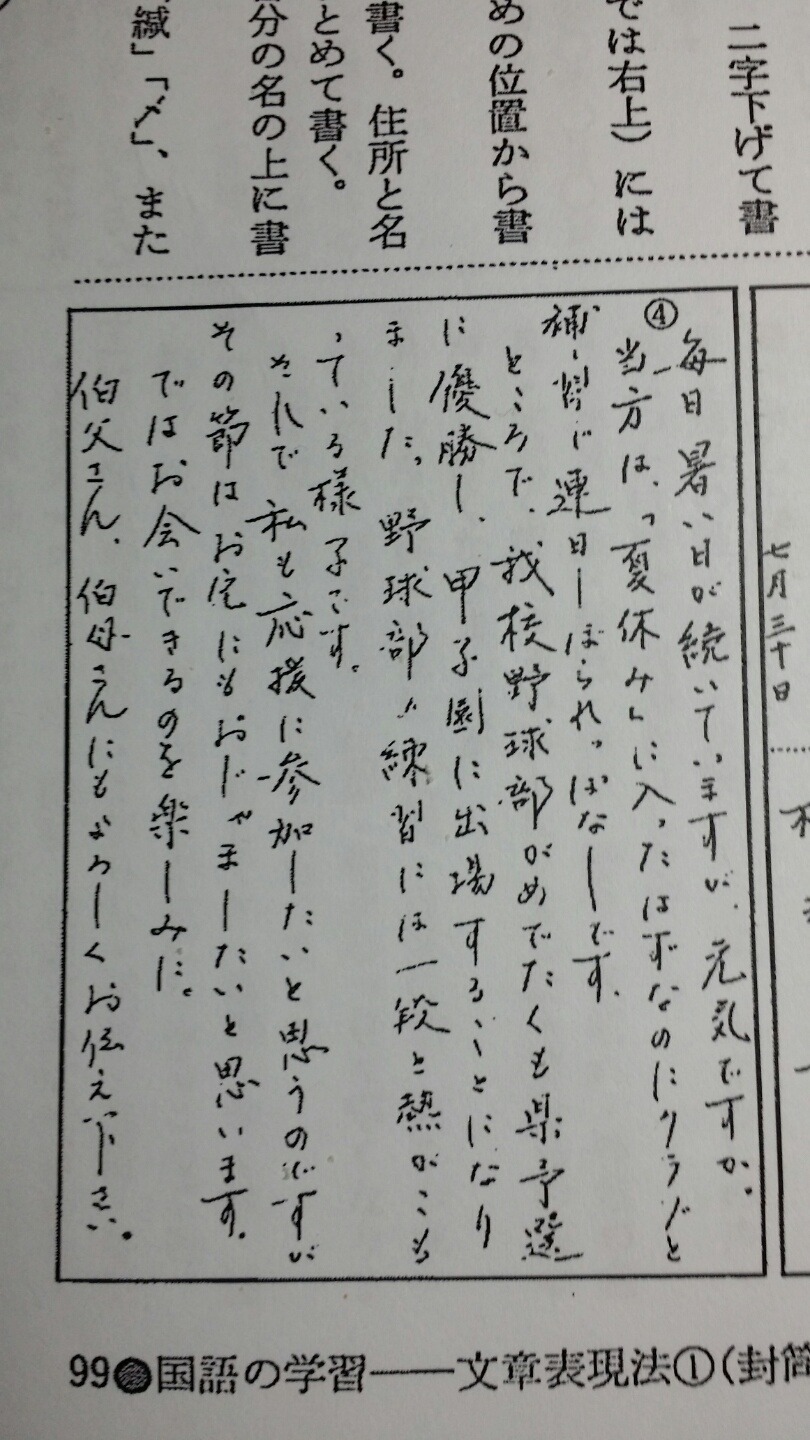 二字下げて書
では右上)には
めの位置から書
書く。住所と名
とめて書く。
分の名の上に書
緘」「〆」、また
七月三十日
④
毎日暑い日が続いていますが、元気ですか。
当方は、「夏休み」に入ったはずなのにクラブと
補習で連日しぼられっぱなしです。
ところで、我校野球部がめでたくも県予選
に優勝し、甲子園に出場することになり
ました。野球部の練習には一段と熱がこも
っている様子です。
それで私も応援に参加したいと思うのですが
その節はお宅にもおじゃましたいと思います。
ではお会いできるのを楽しみに。
伯父さん、伯母さんにもよろしくお伝え下さい。
99 国語の学習——文章表現法①(封筒